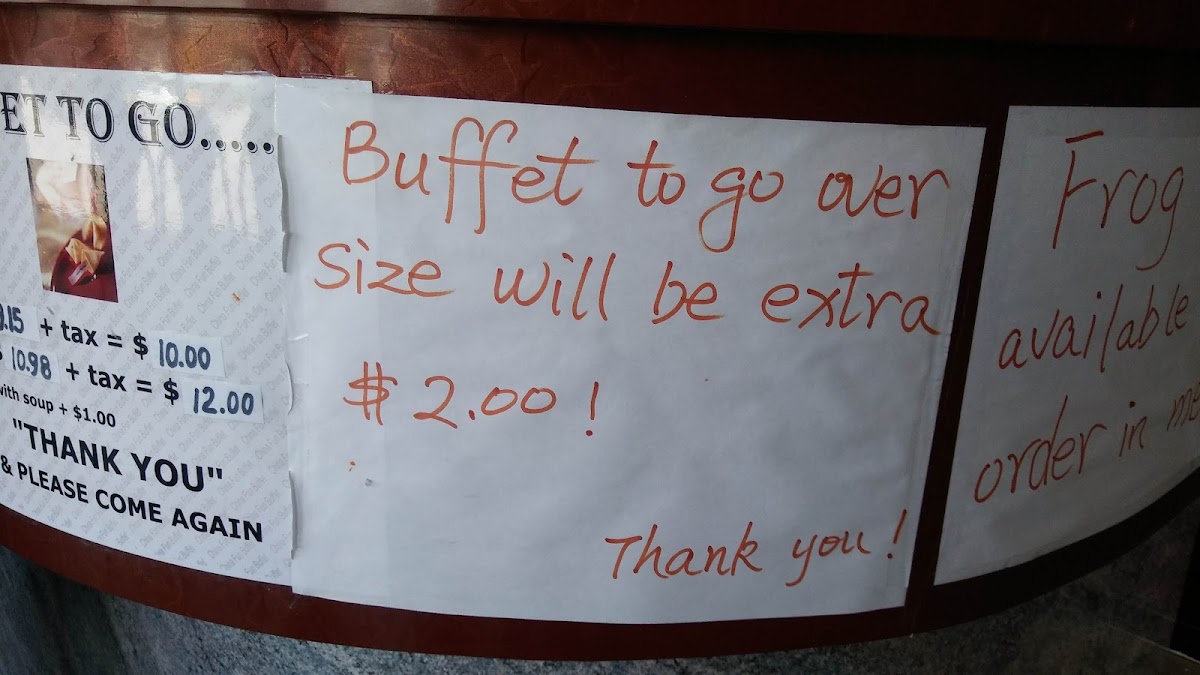 ET TO GO.....
9.15 + tax = $ 10.00
$ 10.98 + tax = $ 12.00
with soup + $1.00
"THANK YOU"
& PLEASE COME AGAIN
Buffet to go over
size will be extra
$ 2.00 !
Thank you !
Frog
available
order in me